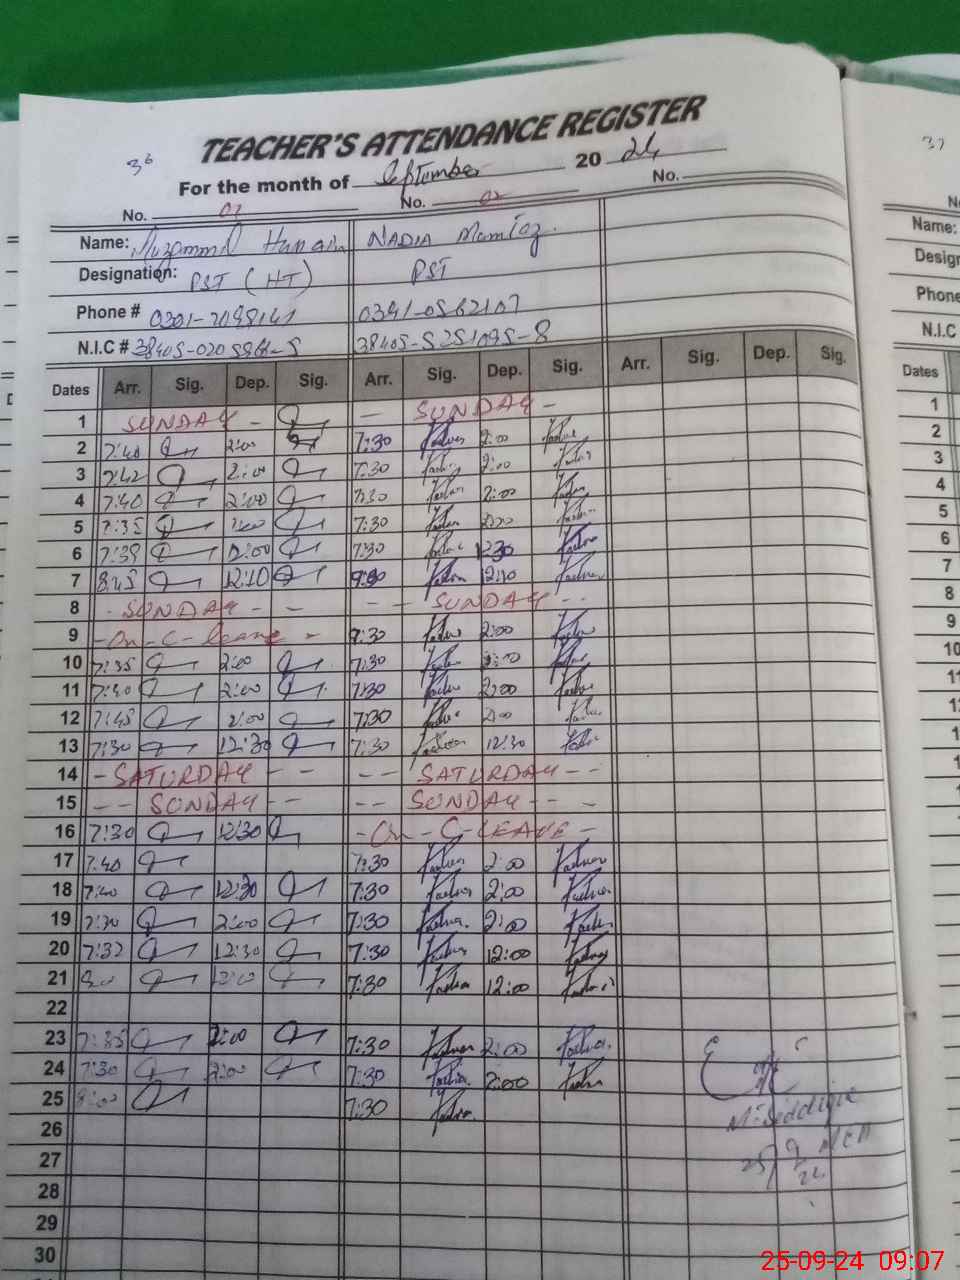 TEACHER'S ATTENDANCE REGISTER
36
37
For the month of September 20 24
No. 01 No. 02 No.
Name: Hassain NADIA Mumtaz.
Designation: PST (HT) PST
Phone # 0301- 0341-0562107
N.I.C # 38405-020 38405-5251095-8
Dates Arr. Sig. Dep. Sig. Arr. Sig. Dep. Sig. Arr. Sig. Dep. Sig.
1 SUNDAY - - SUNDAY -
2 7:40 2:00 7:30 2:00
3 7:42 2:00 7:30 2:00
4 7:40 2:00 7:30 2:00
5 7:35 2:00 7:30 2:00
6 7:39 12:00 7:30 1230
7 8:45 12:10 12:10
8 - SUNDAY - - - - SUNDAY - -
9 - On - C - leave - 2:00
10 7:35 2:00 7:30 2:00
11 7:40 2:00 7:30 2:00
12 7:45 2:00 7:30 2:00
13 7:30 12:30 7:30 12:30
14 - SATURDAY - - - - SATURDAY - -
15 - - SUNDAY - - - - SUNDAY - -
16 7:30 12:30 - On - C - LEAVE -
17 7:40 7:30 2:00
18 7:40 12:30 7:30 2:00
19 7:30 2:00 7:30 2:00
20 7:32 12:30 7:30 12:00
21 12:00 7:30 12:00
22
23 7:35 2:00 7:30 2:00
24 7:30 2:00 7:30 2:00
25 8:00 7:30
26
27
28
29
30
M. Siddique
MEA
25/9
24
Name:
Design
Phone
N.I.C
Dates
1
2
3
4
5
6
7
8
9
10
11
25-09-24 09:07